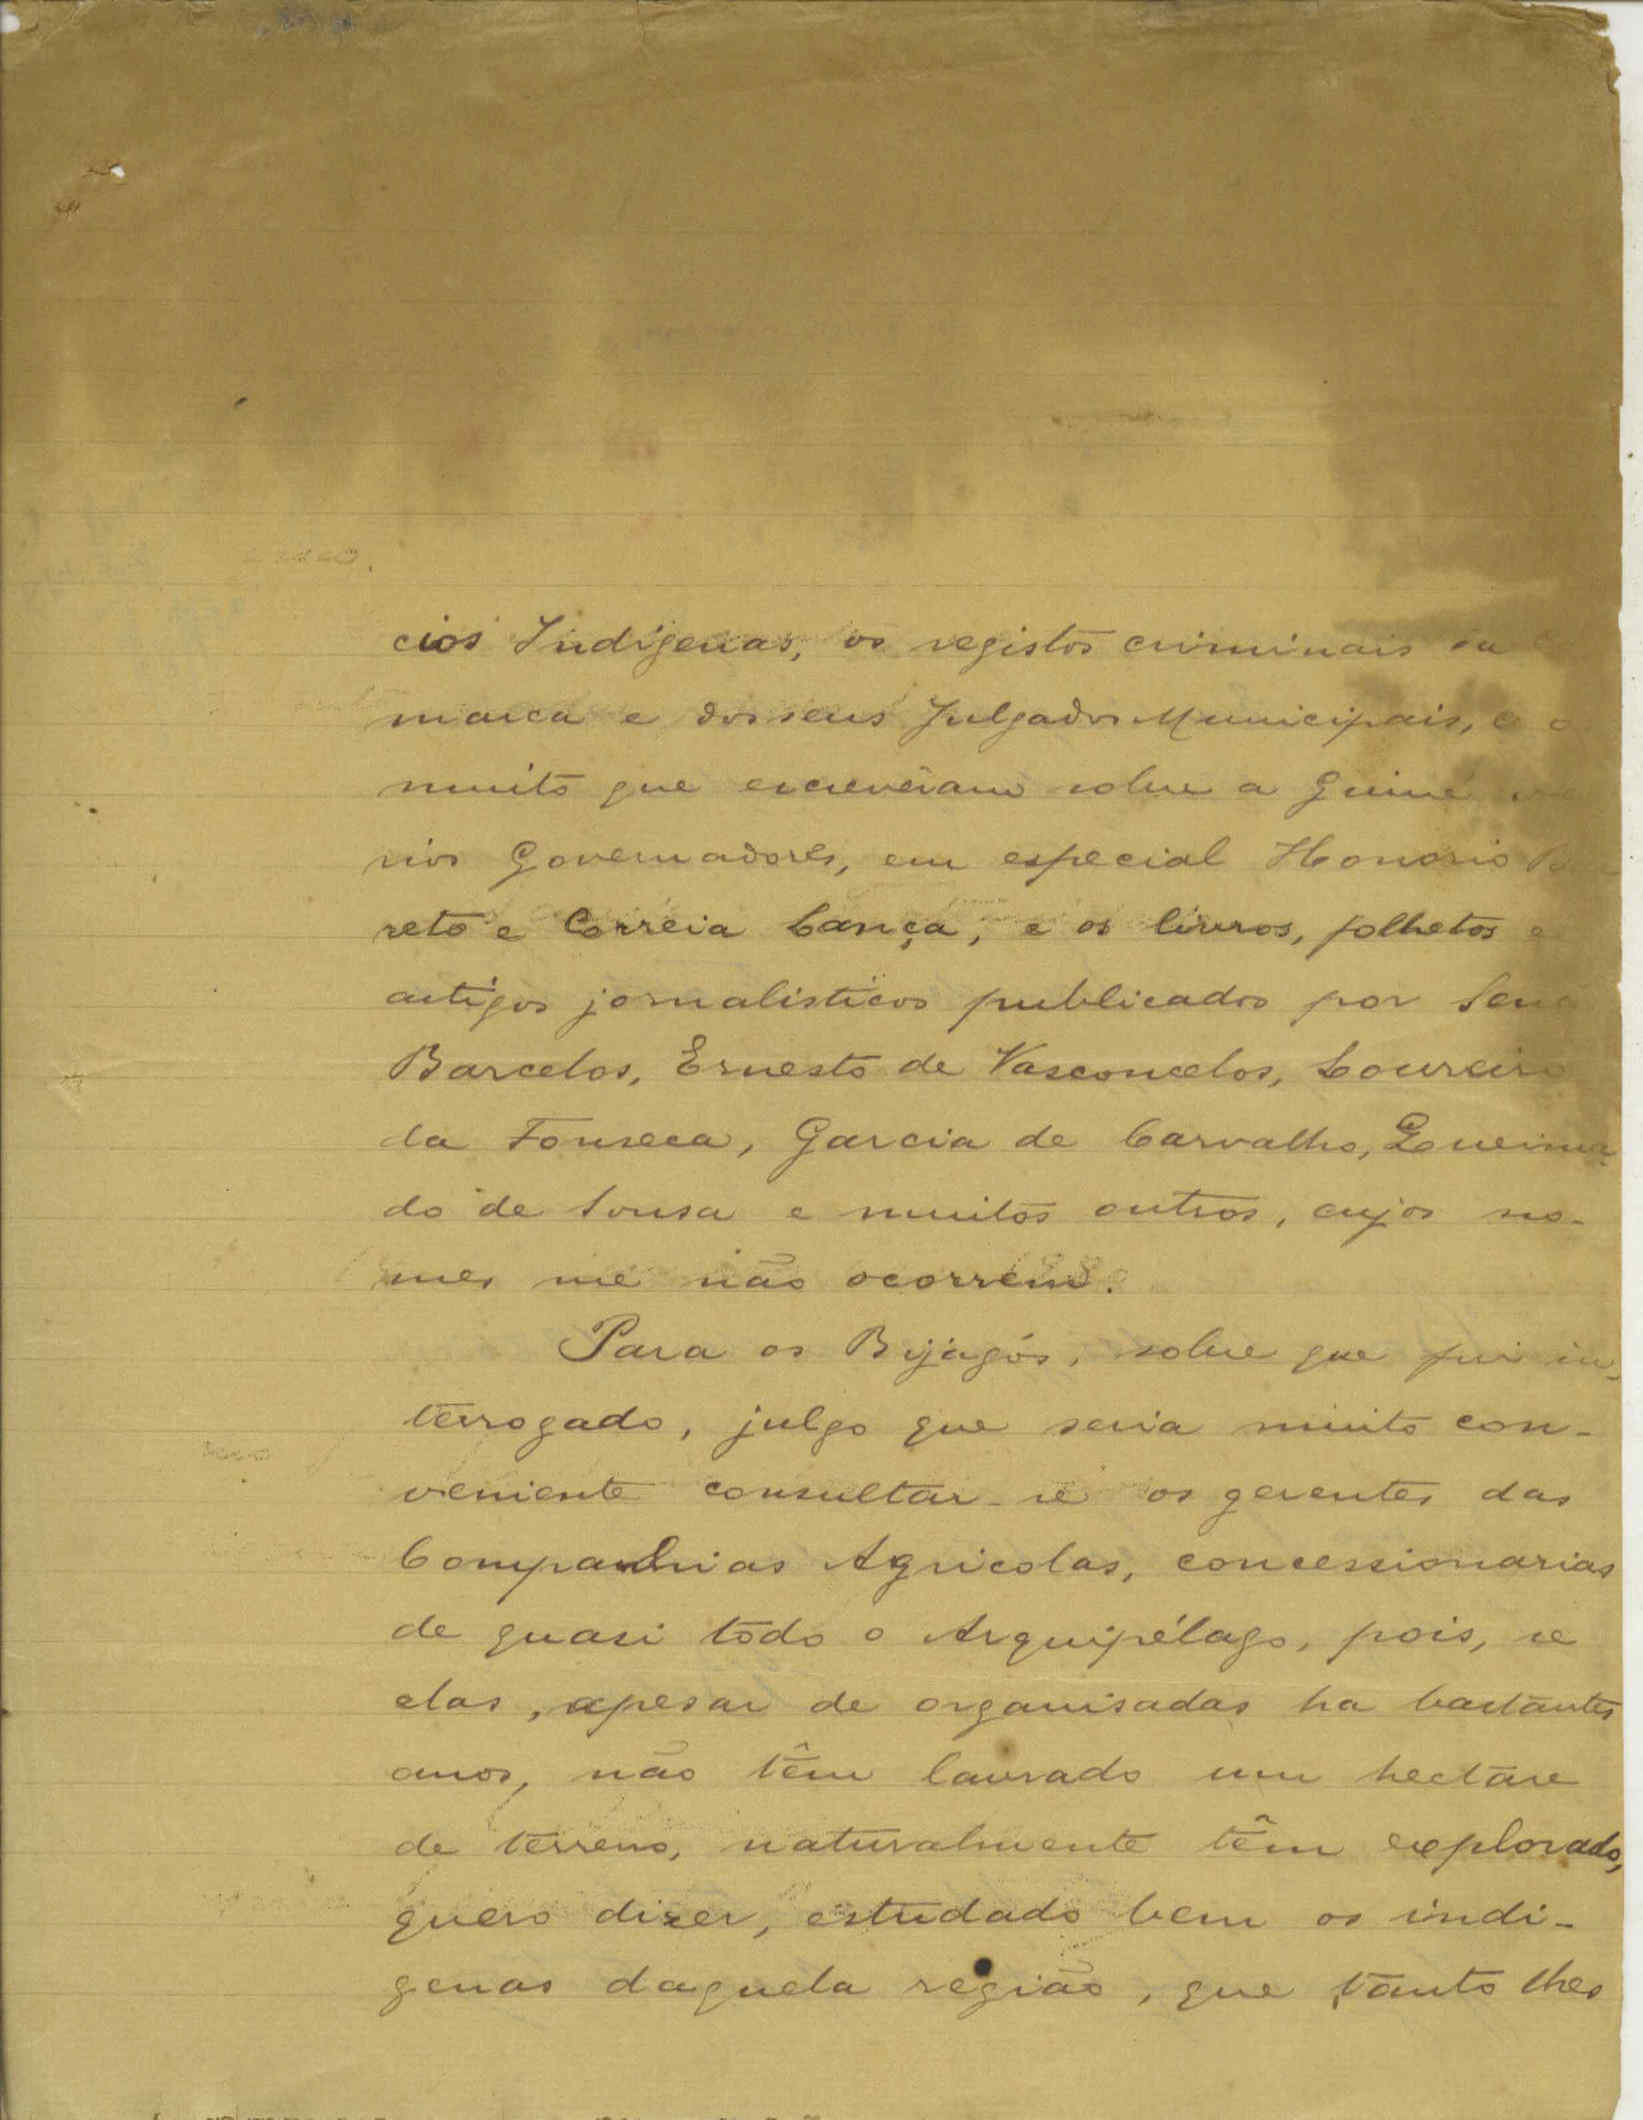 cios Indígenas, os registos criminais da
marca e dos seus Julgados Municipais, e o
muito que escreveram sobre a Guiné
rios Governadores, em especial Honorio
reto e Correia Lança, e os livros, folhetos e
artigos jornalisticos publicados por Sena
Barcelos, Ernesto de Vasconcelos, Loureiro
da Fonseca, Garcia de Carvalho, Queima
do de Sousa e muitos outros, cujos no-
mes me não ocorrem.
Para os Bijagós, sobre que fui in-
terrogado, julgo que seria muito con-
veniente consultar-se os gerentes das
Companhias Agricolas, concessionarias
de quasi todo o Arquipélago, pois, se
elas, apesar de organisadas ha bastantes
anos, não têm lavrado um hectare
de terreno, naturalmente têm explorado,
quero dizer, estudado bem os indi-
genas daquela região, que tanto lhes